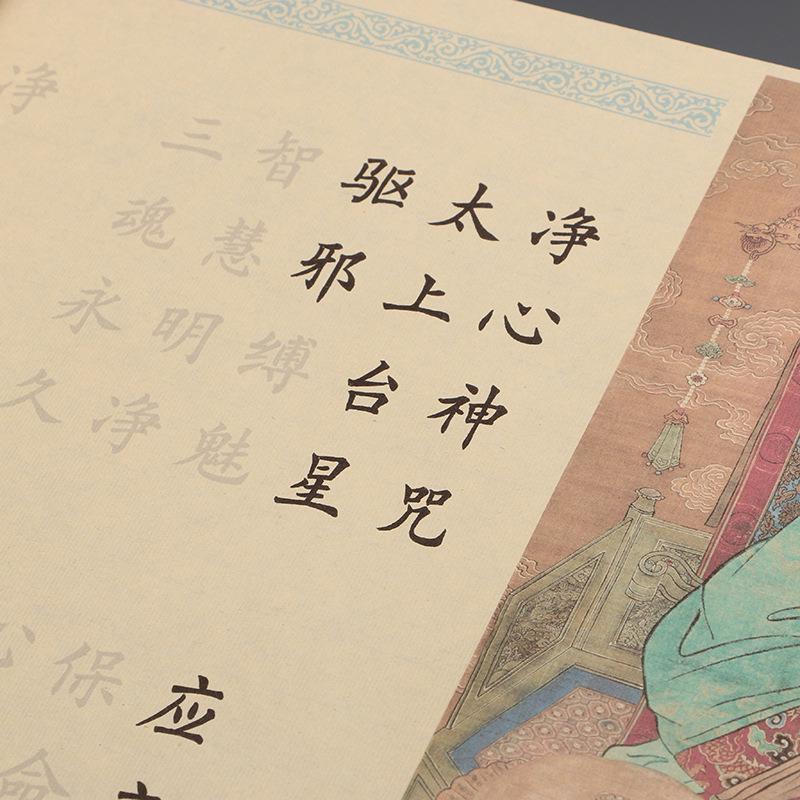 净心神咒
太上台星 应
驱邪缚魅 保命
智慧明净 心
三魂永久
净